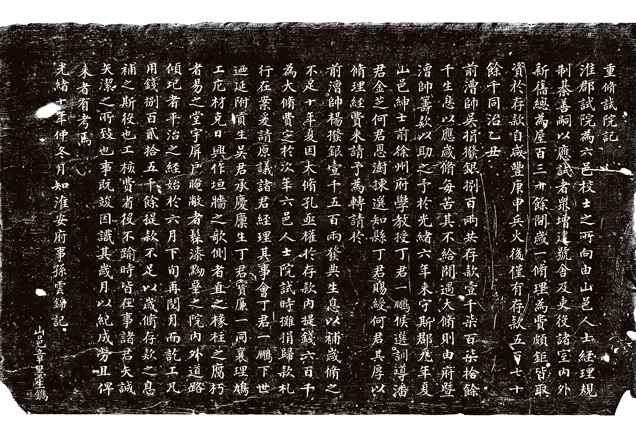 重脩試院記
淮郡試院為六邑校士之所向由山邑人士經理規
制綦善嗣以應試者眾增建號舍及吏役諸室內外
新舊總為屋百三十餘間歲一脩理為費頗鉅皆取
資於存款自咸豐庚申兵火後僅有存款五百七十
餘千同治乙丑
前漕帥吳捐撥銀捌百兩共存款壹千柒百柒拾餘
千生息以應歲脩每苦其不給間遇大脩則由府暨
漕帥籌款以助之予於光緒六年來守斯郡庀年夏
山邑紳士前徐州府學教授丁君一鵬候選訓導潘
君金芝何君恩澍揀選知縣丁君賜綬何君其厚以
脩理經費來請予為轉請於
前漕帥楊撥銀千五百兩發典生息以補歲脩之
不足十年夏因大脩孔亟權於存款內提錢六百千
為大脩費定於次年六邑人士院試時攤捐歸款札
行在案爰請原議諸君經理其事會丁君一鵬下世
迺延附貢生吳君承慶廩生丁君寶廉一同襄理鳩
工庀材克日興作垣牆之欹側者直之椽柱之腐朽
者易之堂宇屏戶晻敝者髹漆黝堊之院內外道路
傾圮者平治之經始於六月下旬再閱月而訖工凡
用錢捌百貳拾五千餘提款不足以歲脩存款之息
補之斯役也工核費省役不踰時皆在事諸君矢誠
矢潔之所致也事既竣因識其歲月以紀成勞且俾
來者有考焉
光緒十年仲冬月知淮安府事孫雲錦記
山邑章里笙鐫